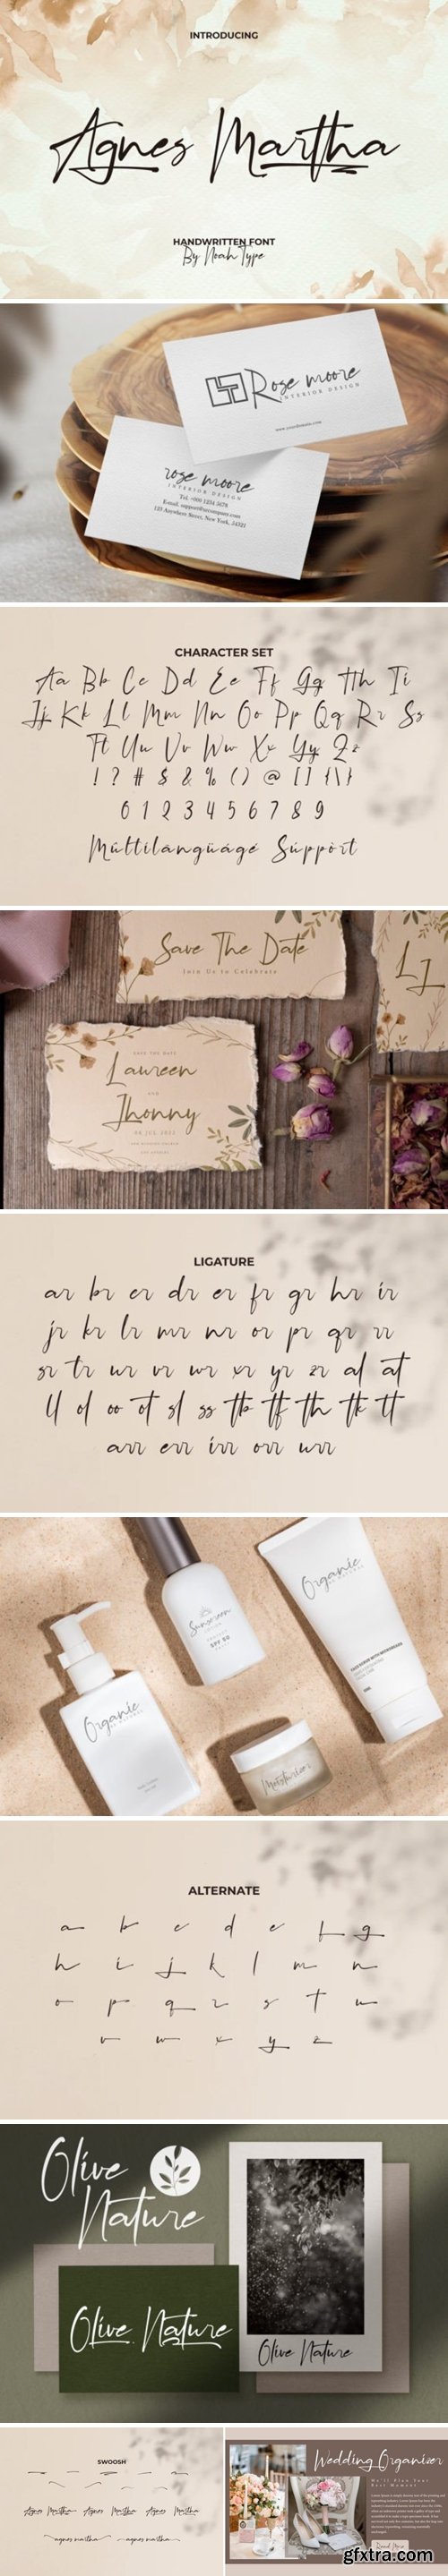 INTRODUCING
Agnes Martha
HANDWRITTEN FONT
By Noah Type
Rose moore
INTERIOR DESIGN
www.yourdomain.com
rose moore
INTERIOR DESIGN
Tel. +000 1234 5678
E-mail: support@urcompany.com
123 Anywhere Street, New York, 34321
CHARACTER SET
Aa Bb Cc Dd Ee Ff Gg Hh Ii
Jj Kk Ll Mm Nn Oo Pp Qq Rr Ss
Tt Uu Vv Ww Xx Yy Zz
! ? # $ & % ( ) @ [ ] { \ }
0 1 2 3 4 5 6 7 8 9
Múltilángüágé Súppòrt
Save The Date
Join Us to Celebrate
L J
SAVE THE DATE
Laureen
AND
Jhonny
LIGATURE
ar br cr dr er fr gr hr ir
jr kr lr mr nr or pr qr rr
sr tr ur vr wr xr yr zr al at
ll ol oo ot sl ss tb tf th tk tt
arr err irr orr urr
Organic
Sunscreen
SPF 50
Organic
Moisturizer
ALTERNATE
a b c d e f g
h i j k l m n
o p q r s t u
v w x y z
Olive
Nature
Olive Nature
Olive Nature
SWOOSH
Agnes Martha Agnes Martha Agnes Martha
agnes martha agnes martha
Wedding Organizer
We'll Plan Your
Best Moment
Read More
gfxtra.com